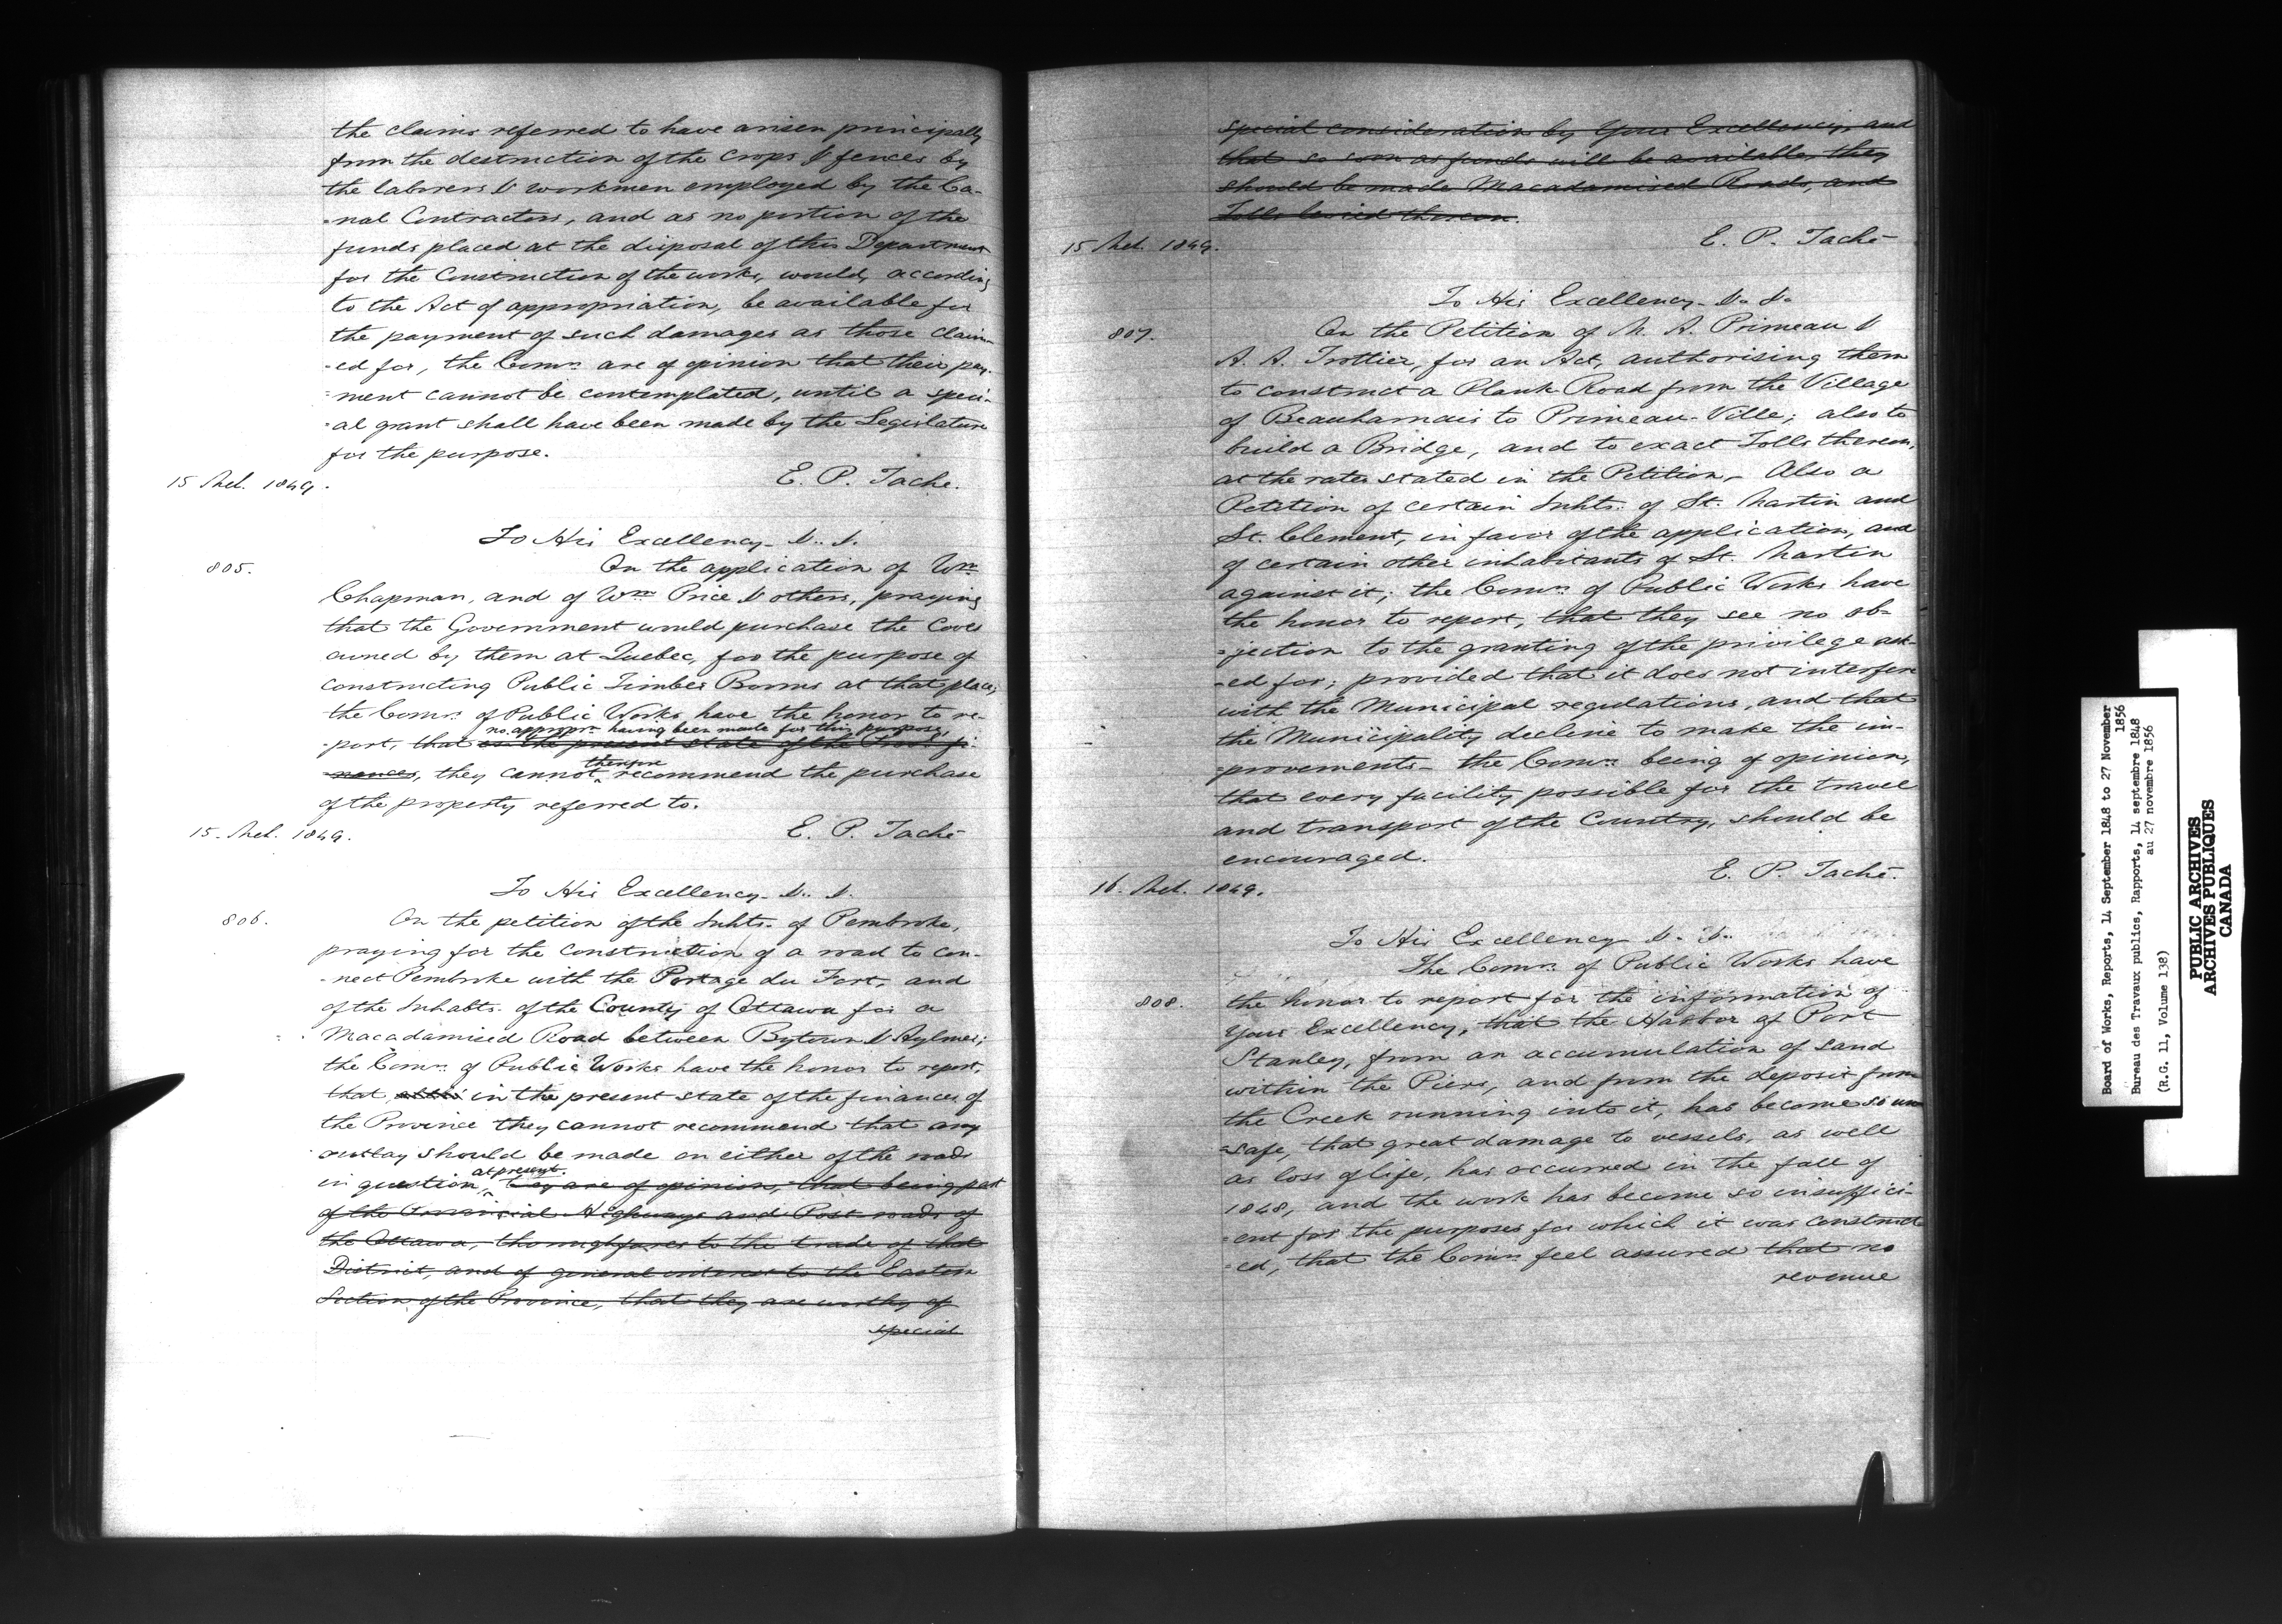 the claims referred to have arisen principally
from the destruction of the crops & fences by
the laborers & workmen employed by the Ca-
-nal Contractors, and as no portion of the
funds placed at the disposal of this Department
for the Construction of the works, would, according
to the Act of appropriation, be available for
the payment of such damages as those claim-
-ed for, the Comrs. are of opinion that their pay-
-ment cannot be contemplated, until a speci-
-al grant shall have been made by the Legislature
for the purpose.
15 Mch. 1849.
E. P. Taché.
To His Excellency &. &.
805.
On the application of Wm.
Chapman, and of Wm. Price & others, praying
that the Government would purchase the Coves
owned by them at Quebec, for the purpose of
constructing Public Timber Booms at that place;
the Comrs. of Public Works have the honor to re-
no appropn. having been made for this purpose,
-port, that in the present state of the Prov. fi-
therefore
-nances, they cannot recommend the purchase
of the property referred to.
15. Mch. 1849.
E. P. Taché
To His Excellency &. &.
806.
On the petition of the Inhts. of Pembroke,
praying for the construction of a road to con-
-nect Pembroke with the Portage du Fort, and
of the Inhabts. of the County of Ottawa for a
Macadamised Road between Bytown & Aylmer;
the Comrs. of Public Works have the honor to report,
that in the present state of the finances of
the Province they cannot recommend that any
outlay should be made on either of the roads
at present.
in question, they are of opinion, that being part
of the Provincial Highways and Post roads of
the Ottawa, thoroughfares to the trade of that
District, and of general interest to the Eastern
Section of the Province, that they are worthy of
special
special consideration by Your Excellency, and
that so soon as funds will be available, they
should be made Macadamised Roads, and
Tolls levied thereon.
15 Mch. 1849.
E. P. Taché
To His Excellency &. &.
807.
On the Petition of M. A. Primeau &
A. A. Trottier, for an Act, authorising them
to construct a Plank Road from the Village
of Beauharnais to Primeau-Ville; also to
build a Bridge, and to exact Tolls thereon,
at the rates stated in the Petition, Also a
Petition of certain Inhts. of St. Martin and
St. Clement, in favor of the application, and
of certain other inhabitants of St. Martin
against it; the Comrs. of Public Works have
the honor to report, that they see no ob-
-jection to the granting of the privilege ask-
-ed for; provided that it does not interfere
with the Municipal regulations, and that
the Municipality decline to make the im-
-provements - the Comrs. being of opinion,
that every facility possible for the travel
and transport of the Country, should be
encouraged.
E. P. Taché.
16. Mch. 1849.
To His Excellency &. &.
The Comrs. of Public Works have
808.
the honor to report for the information of
Your Excellency, that the Harbor of Port
Stanley, from an accumulation of sand
within the Piers, and from the deposit from
the Creek running into it, has become so un-
-safe, that great damage to vessels, as well
as loss of life, has occurred in the fall of
1848, and the work has become so insuffici-
-ent for the purposes for which it was construct-
-ed, that the Comrs. feel assured that no
revenue
Board of Works, Reports, 14 September 1848 to 27 November
1856
Bureau des Travaux publics, Rapports, 14 septembre 1848
au 27 novembre 1856
(R.G. 11, Volume 138)
PUBLIC ARCHIVES
ARCHIVES PUBLIQUES
CANADA